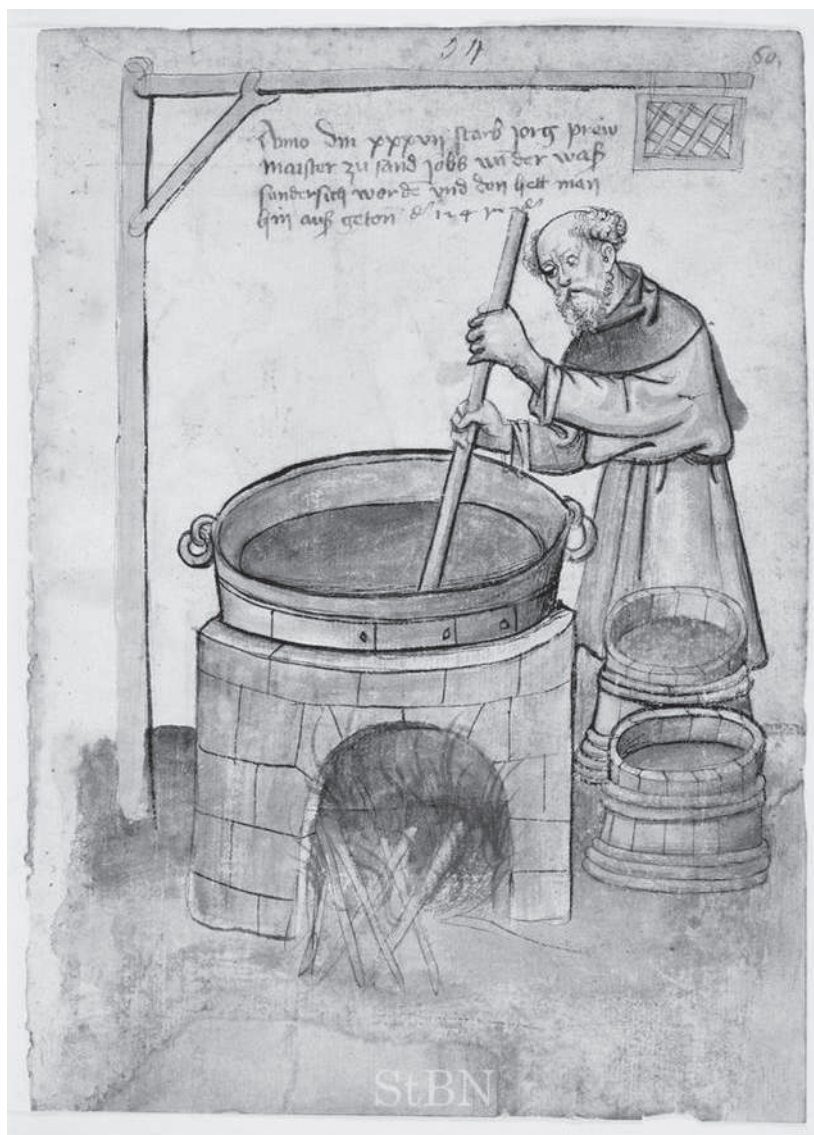 54
60.
Anno dm xxxvii starb jorg prew
maister zu sand jobs und der waß
sundersich worde vnd den hett man
hin auß geton
StBN